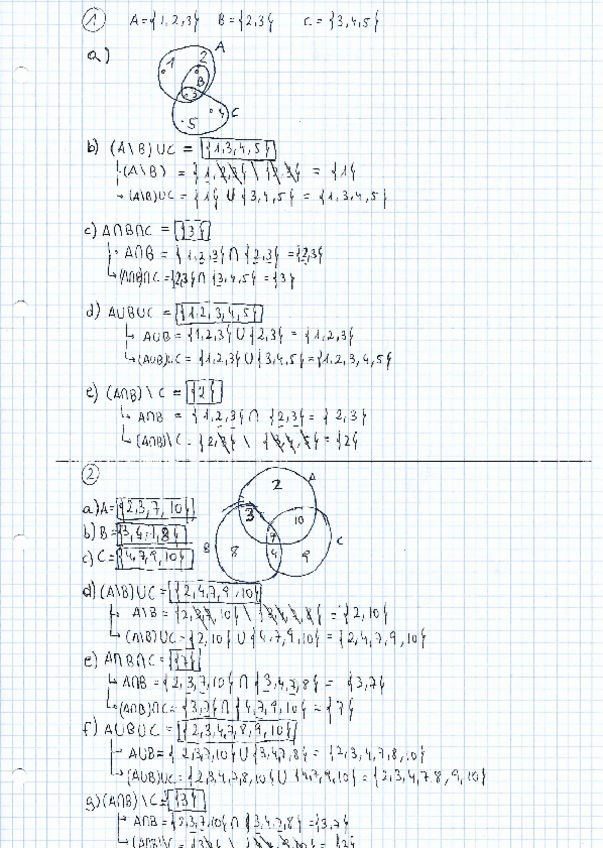 1 A={1,2,3} B={2,3} C={3,4,5}
a)
A
1 2
B
3
4 C
5
b) (A\B)∪C = {1,3,4,5}
(A\B) = {1,2,3} \ {2,3} = {1}
(A\B)∪C = {1} ∪ {3,4,5} = {1,3,4,5}
c) A∩B∩C = {3}
A∩B = {1,2,3} ∩ {2,3} = {2,3}
(A∩B)∩C = {2,3} ∩ {3,4,5} = {3}
d) A∪B∪C = {1,2,3,4,5}
A∪B = {1,2,3} ∪ {2,3} = {1,2,3}
(A∪B)∪C = {1,2,3} ∪ {3,4,5} = {1,2,3,4,5}
e) (A∩B)\C = {2}
A∩B = {1,2,3} ∩ {2,3} = {2,3}
(A∩B)\C = {2,3} \ {3,4,5} = {2}
2
2 A
3 10
7
B 8 4 9 C
a) A={2,3,7,10}
b) B={3,4,7,8}
c) C={4,7,9,10}
d) (A\B)∪C = {2,4,7,9,10}
A\B = {2,3,7,10} \ {3,4,7,8} = {2,10}
(A\B)∪C = {2,10} ∪ {4,7,9,10} = {2,4,7,9,10}
e) A∩B∩C = {7}
A∩B = {2,3,7,10} ∩ {3,4,7,8} = {3,7}
(A∩B)∩C = {3,7} ∩ {4,7,9,10} = {7}
f) A∪B∪C = {2,3,4,7,8,9,10}
A∪B = {2,3,7,10} ∪ {3,4,7,8} = {2,3,4,7,8,10}
(A∪B)∪C = {2,3,4,7,8,10} ∪ {4,7,9,10} = {2,3,4,7,8,9,10}
g) (A∩B)\C = {3}
A∩B = {2,3,7,10} ∩ {3,4,7,8} = {3,7}